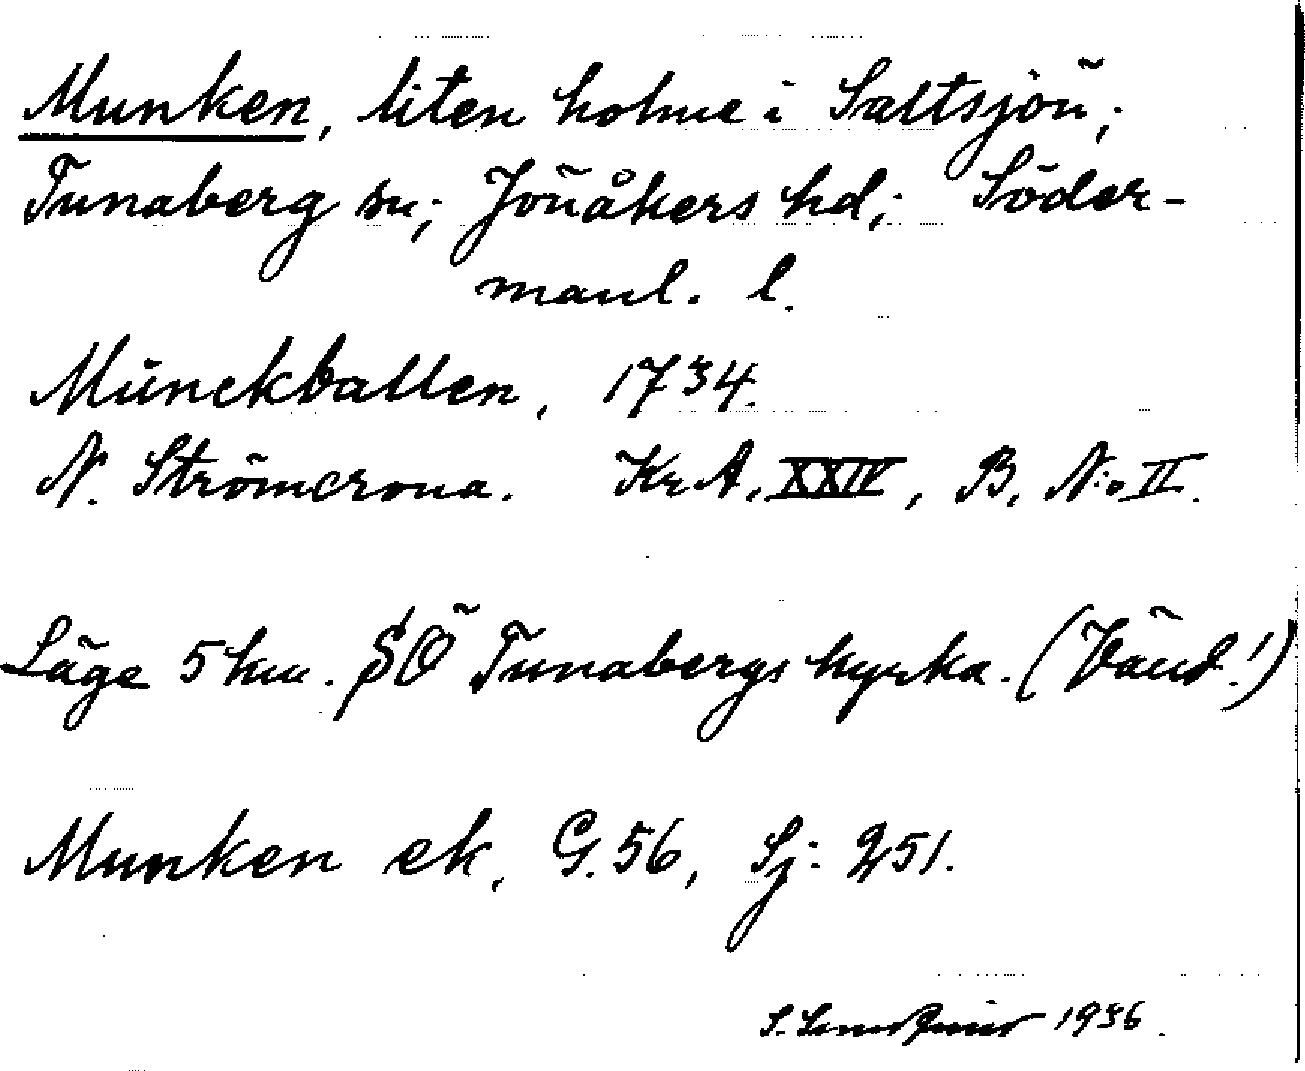 Munken, liten holme i Saltsjön;
Tunaberg sn; Jönåkers hd; Söder-
manl. l.
Münckballen, 1734.
N. Strömcrona. Kr A, XXIV, B, N:o II.
Läge 5 km. SÖ Tunabergs kyrka. (Vänd!)
Munken ek, G. 56, Sj: 251.
S. 1936.